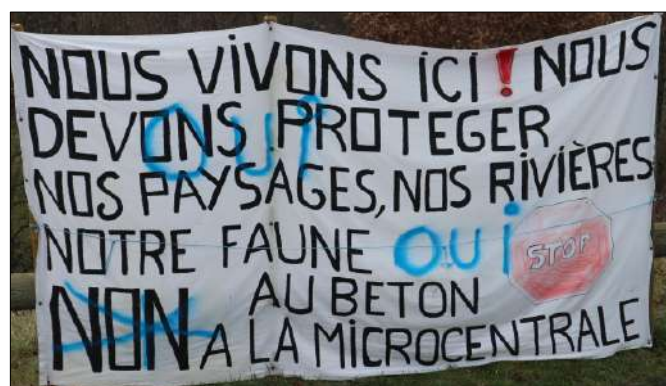 NOUS VIVONS ICI ! NOUS
DEVONS PROTEGER
OUI
NOS PAYSAGES, NOS RIVIÈRES
NOTRE FAUNE OUI STOP
NON AU BETON
A LA MICROCENTRALE